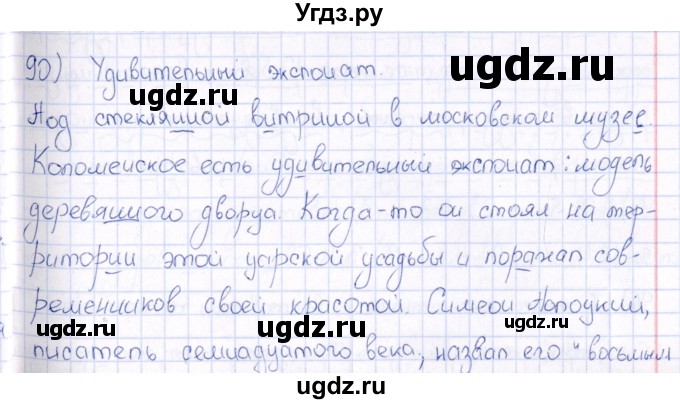 Угдз.ру
90) Удивительный экспонат.
Под стеклянной витриной в московском музее
Коломенское есть удивительный экспонат: модель
деревянного дворца. Когда-то он стоял на тер-
ритории этой царской усадьбы и поражал сов-
ременников своей красотой. Симеон Полоцкий,
писатель семнадцатого века, назвал его "восьмым
ugdz.ru ugdz.ru
ugdz.ru
ugdz.ru ugdz.ru
ugdz.ru
ugdz.ru ugdz.ru
ugdz.ru